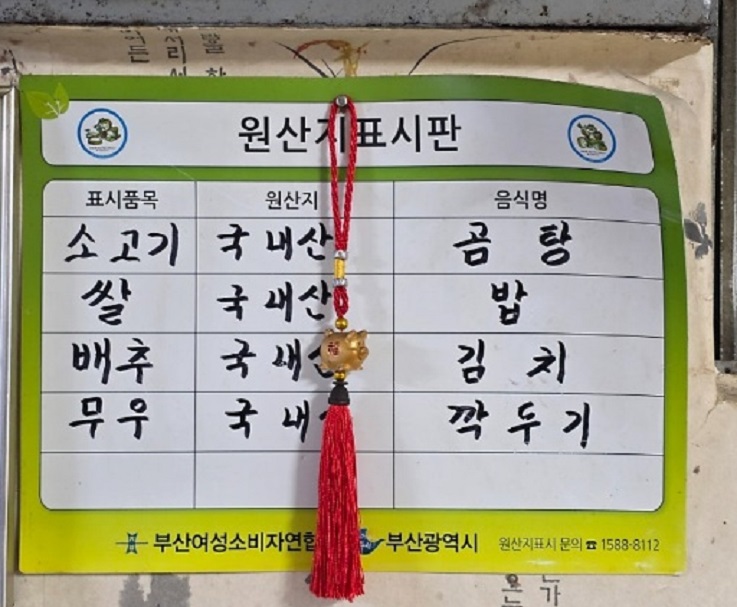 원산지표시판
표시품목 원산지 음식명
소고기 국내산 곰탕
쌀 국내산 밥
배추 국내산 김치
무우 국내 깍두기
부산여성소비자연합 부산광역시 원산지표시 문의 ☎ 1588-8112